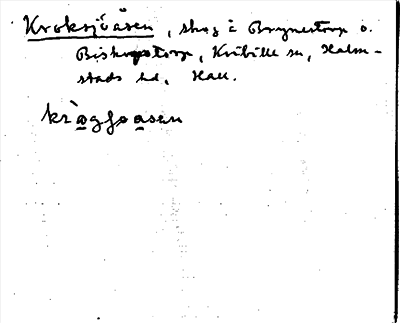 Kroksjöåsen, skog i Brynestorp o.
Biskopstorp, Kvibille sn, Halm-
stads hd, Hall.
kràgsjoasen